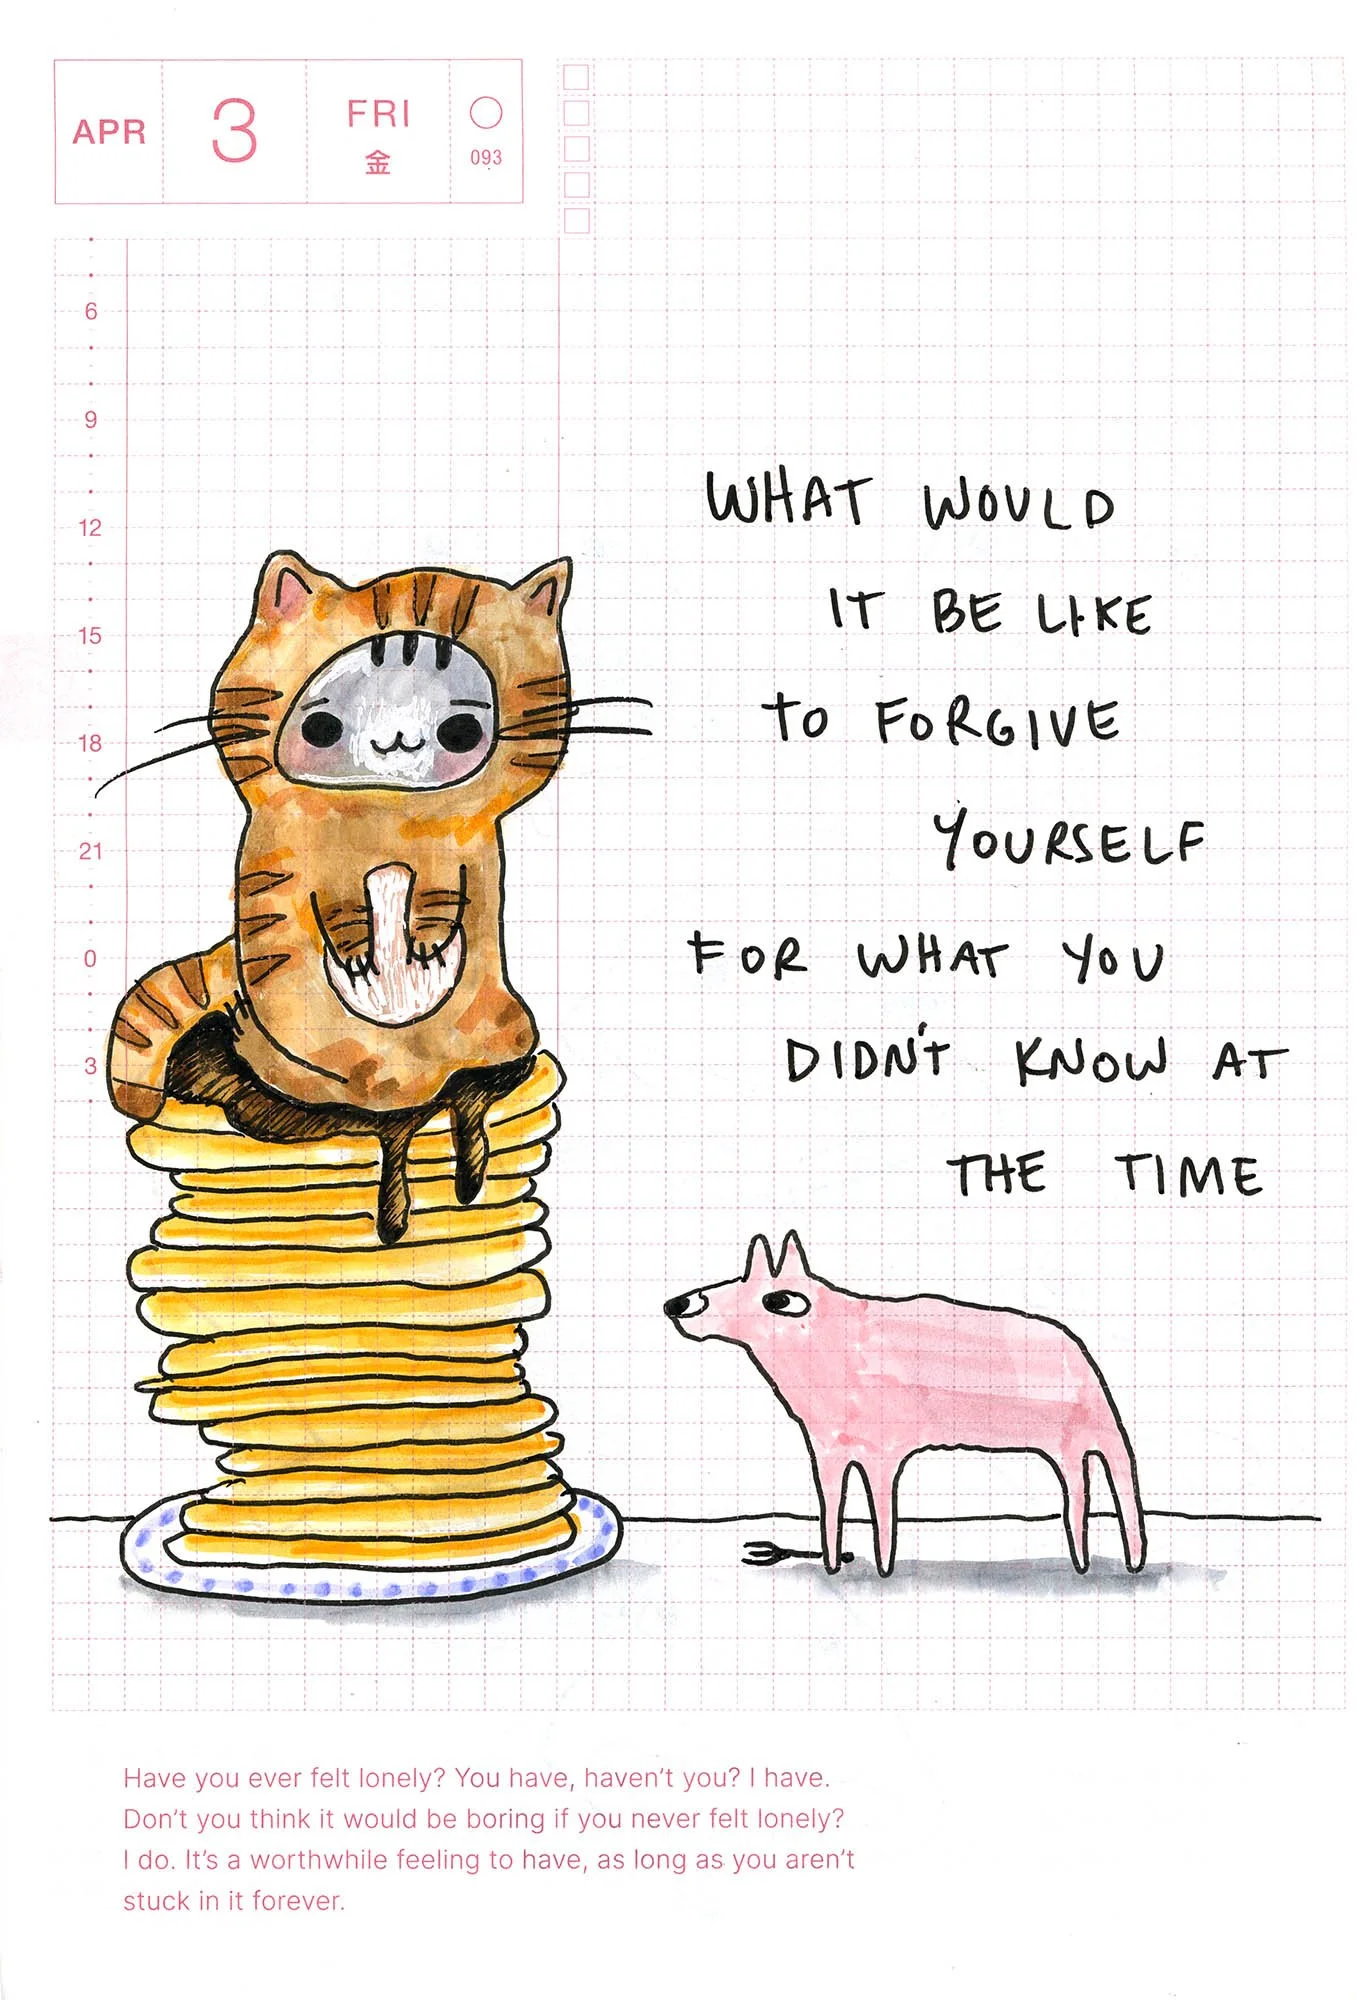 APR 3 FRI
金 093
6
9
12
15
18
21
0
3
WHAT WOULD
IT BE LIKE
TO FORGIVE
YOURSELF
FOR WHAT YOU
DIDN'T KNOW AT
THE TIME
Have you ever felt lonely? You have, haven't you? I have.
Don't you think it would be boring if you never felt lonely?
I do. It's a worthwhile feeling to have, as long as you aren't
stuck in it forever.